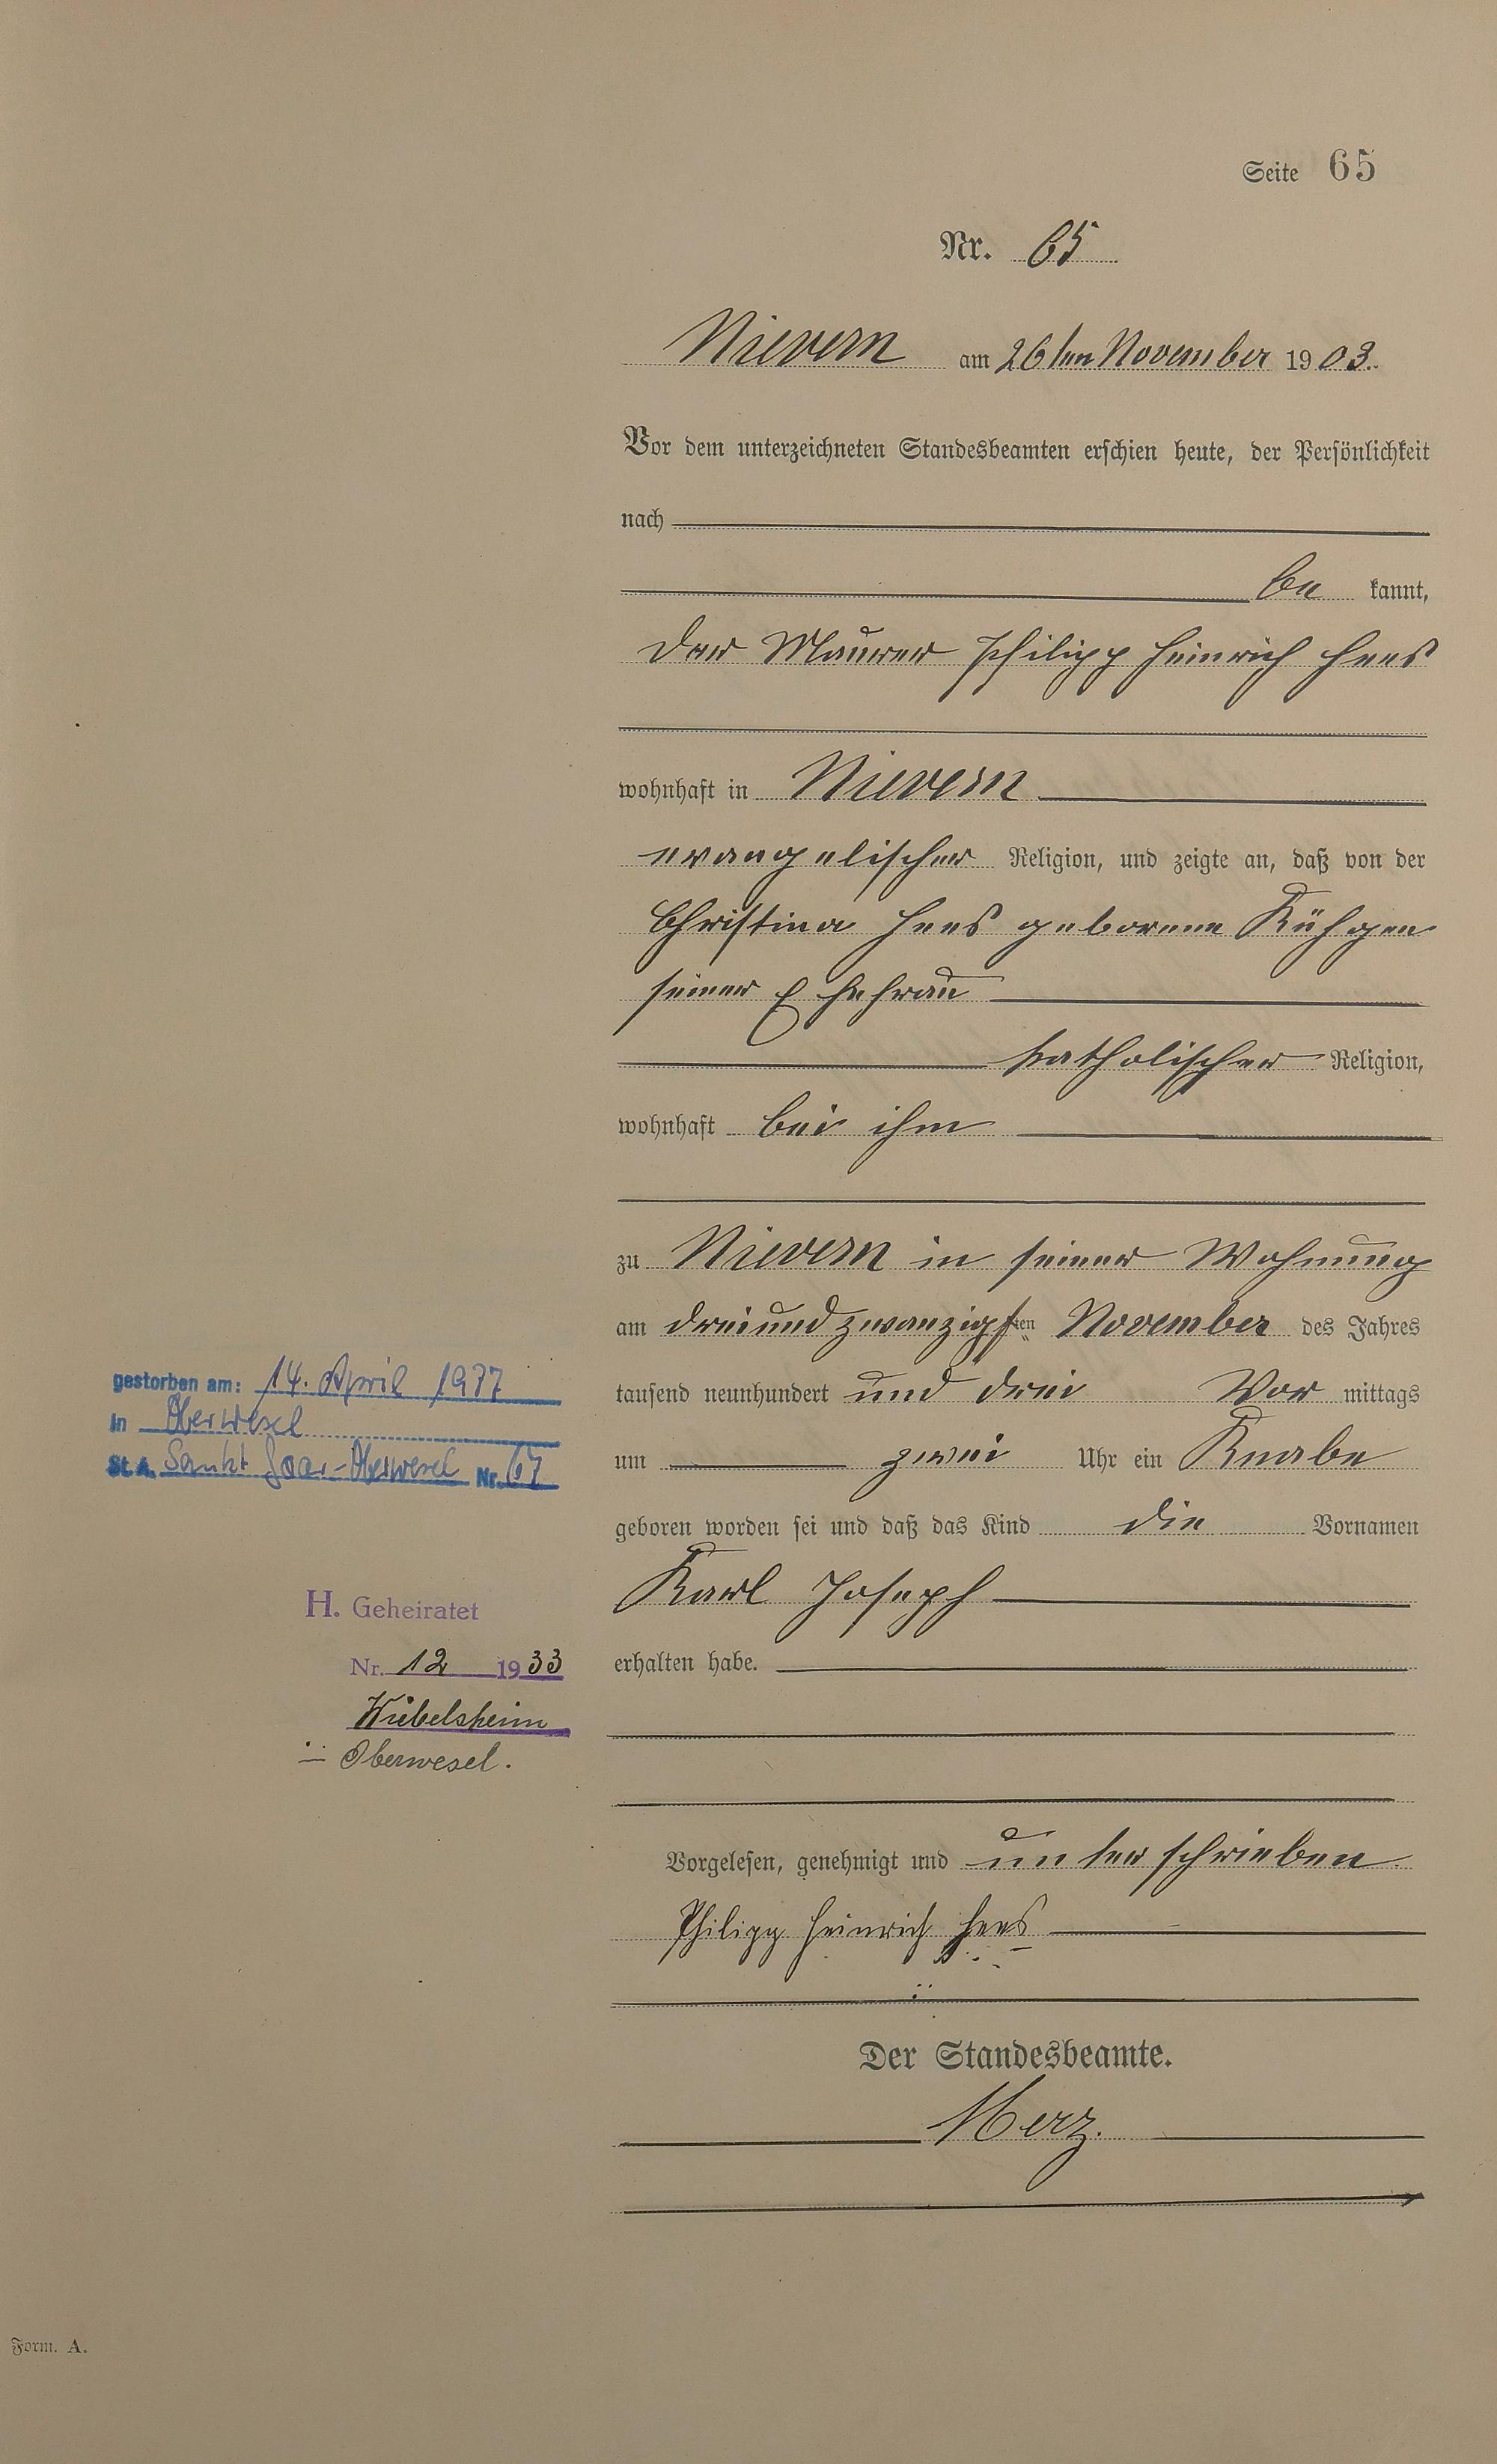 Seite 65
Nr. 65
Nievern am 26ten November 1903.
Vor dem unterzeichneten Standesbeamten erschien heute, der Persönlichkeit
nach
be kannt,
der Maurer Philipp Heinrich Hees
wohnhaft in Nievern
evangelischer Religion, und zeigte an, daß von der
Christina Hees geborene Kühgen
seiner Ehefrau
katholischer Religion,
wohnhaft bei ihm
zu Nievern in seiner Wohnung
am dreiundzwanzigsten November des Jahres
tausend neunhundert und drei Vor mittags
um zwei Uhr ein Knabe
geboren worden sei und daß das Kind die Vornamen
Karl Joseph
erhalten habe.
Vorgelesen, genehmigt und unterschrieben
Philipp Heinrich Hees
Der Standesbeamte.
Merz.
gestorben am: 14. April 1977
in Oberwesel
St. A. Sankt Goar-Oberwesel Nr.
H. Geheiratet
Nr. 12 1933
Wiebelsheim
Oberwesel.
Form. A.